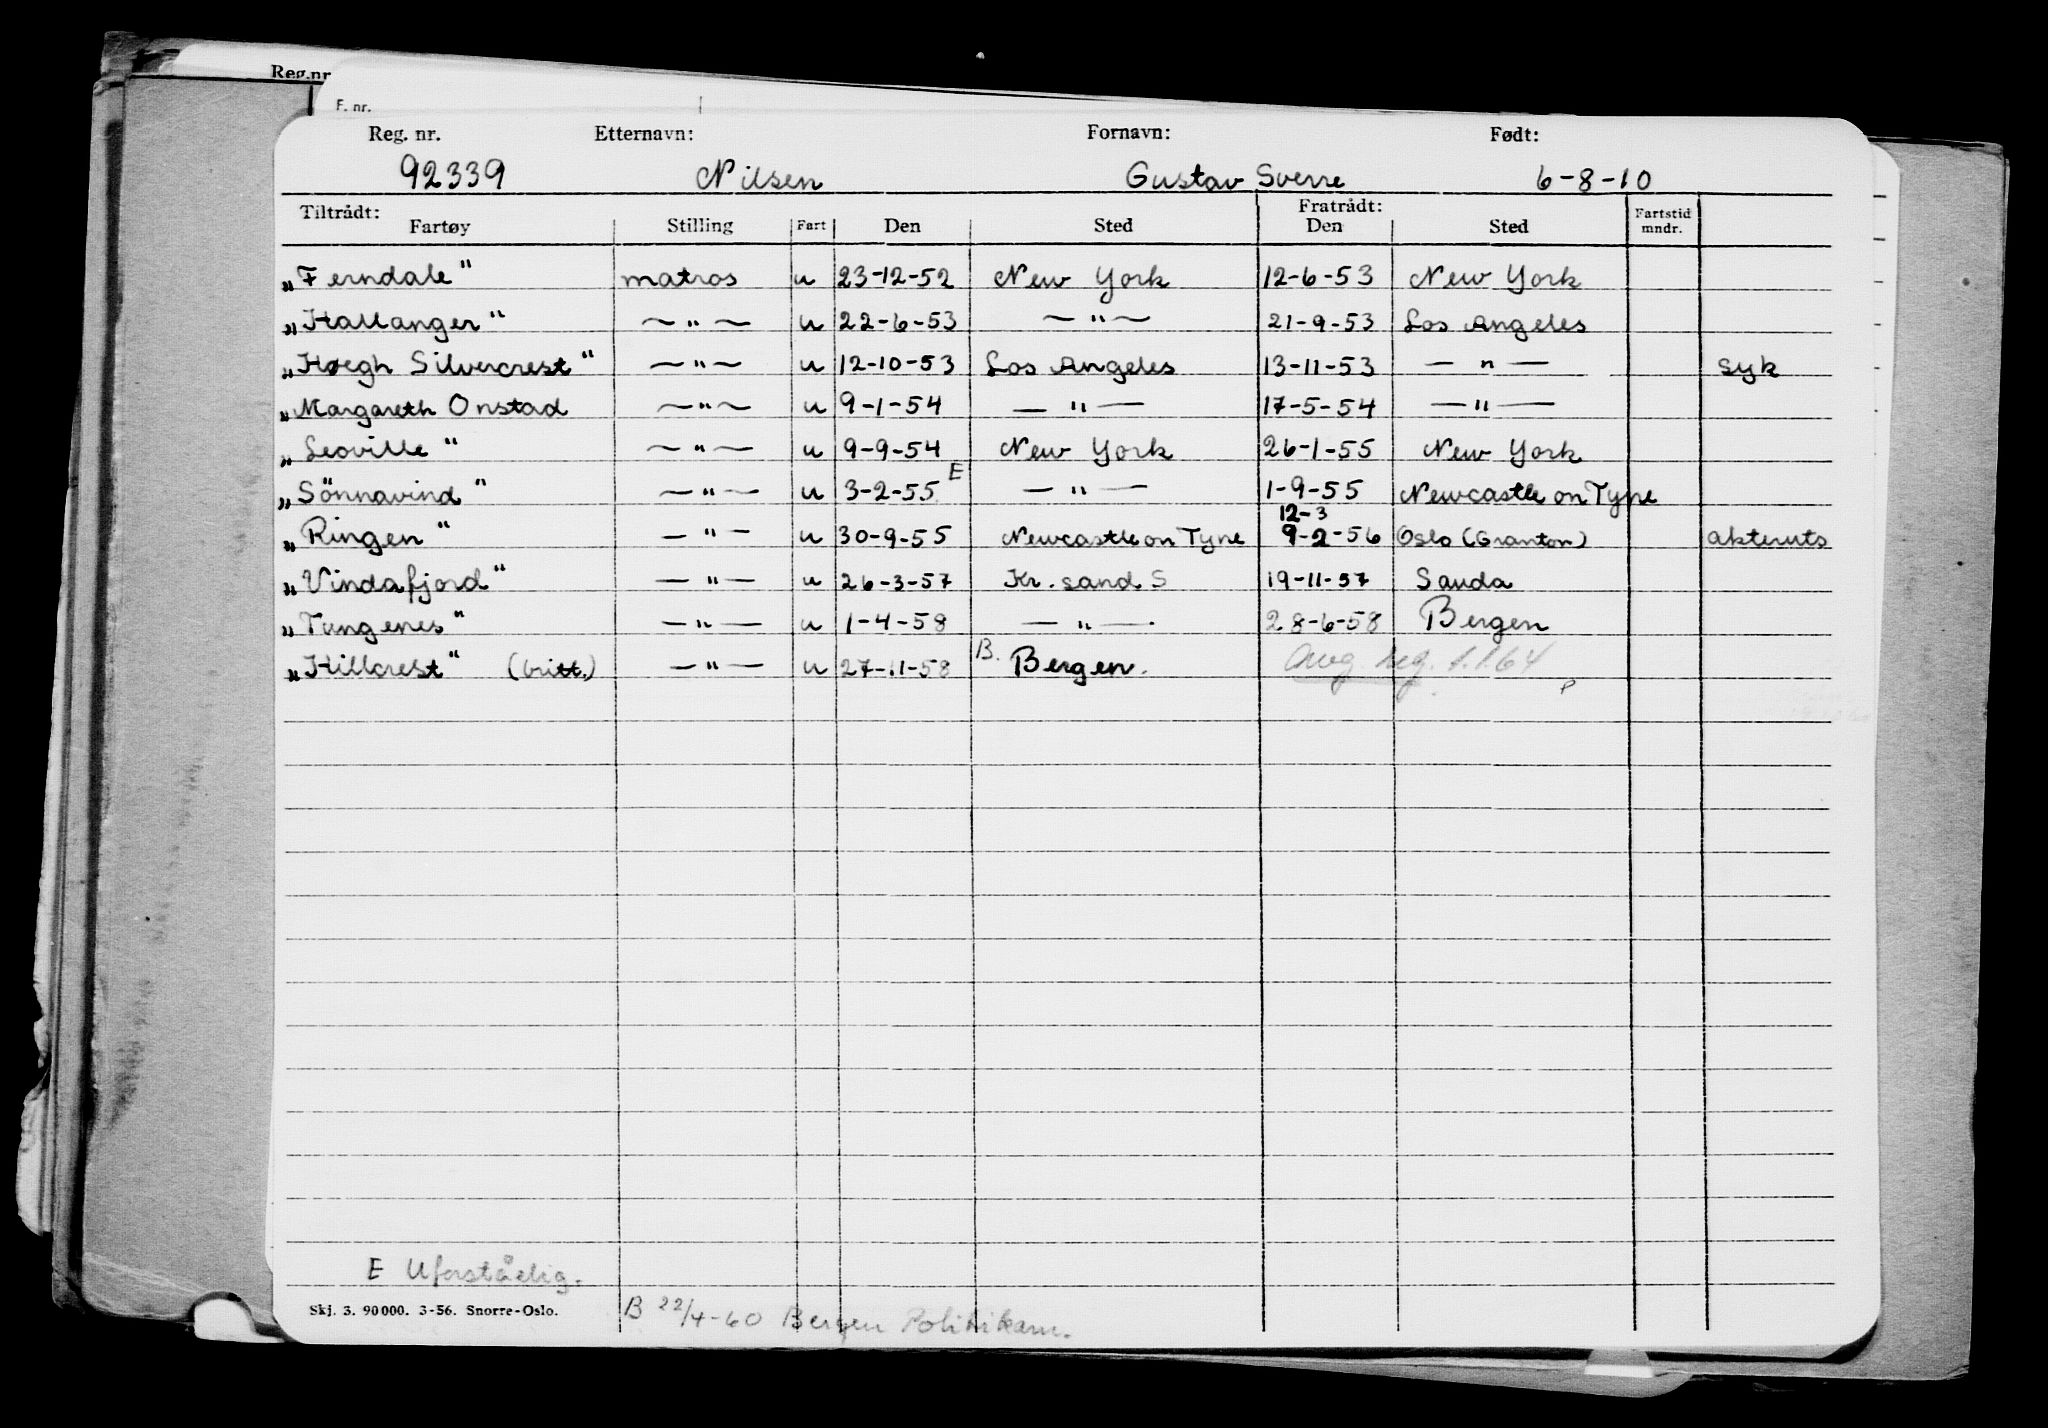 Reg.nr
F. nr.
Reg. nr. Etternavn: Fornavn: Født:
92339 Nilsen Gustav Sverre 6-8-10
Tiltrådt: Fratrådt:
Fartøy Stilling Fart Den Sted Den Sted Fartstid mndr.
„Ferndale" matros u 23-12-52 New York 12-6-53 New York
„Hallanger" ~ " ~ u 22-6-53 ~ " ~ 21-9-53 Los Angeles
„Høegh Silvercrest" — " — u 12-10-53 Los Angeles 13-11-53 — " — syk
„Margareth Onstad ~ " ~ u 9-1-54 — " — 17-5-54 — " —
„Leoville" ~ " — u 9-9-54 New York 26-1-55 New York
„Sönnavind" — " — u 3-2-55 E — " — 1-9-55 Newcastle on Tyne
12-3
„Ringen" — " — u 30-9-55 Newcastle on Tyne 9-2-56 Oslo (Granton) akteruts
„Vindafjord" — " — u 26-3-57 Kr. sand S 19-11-57 Sauda
„Tungenes" — " — u 1-4-58 — " — 28-6-58 Bergen
„Hillcrest" (britt.) — " — u 27-11-58 B. Bergen. Avg. reg. 1.1.64
P
E Uforståelig.
Skj. 3. 90000. 3-56. Snorre-Oslo.
B 22/4-60 Bergen Politikam.